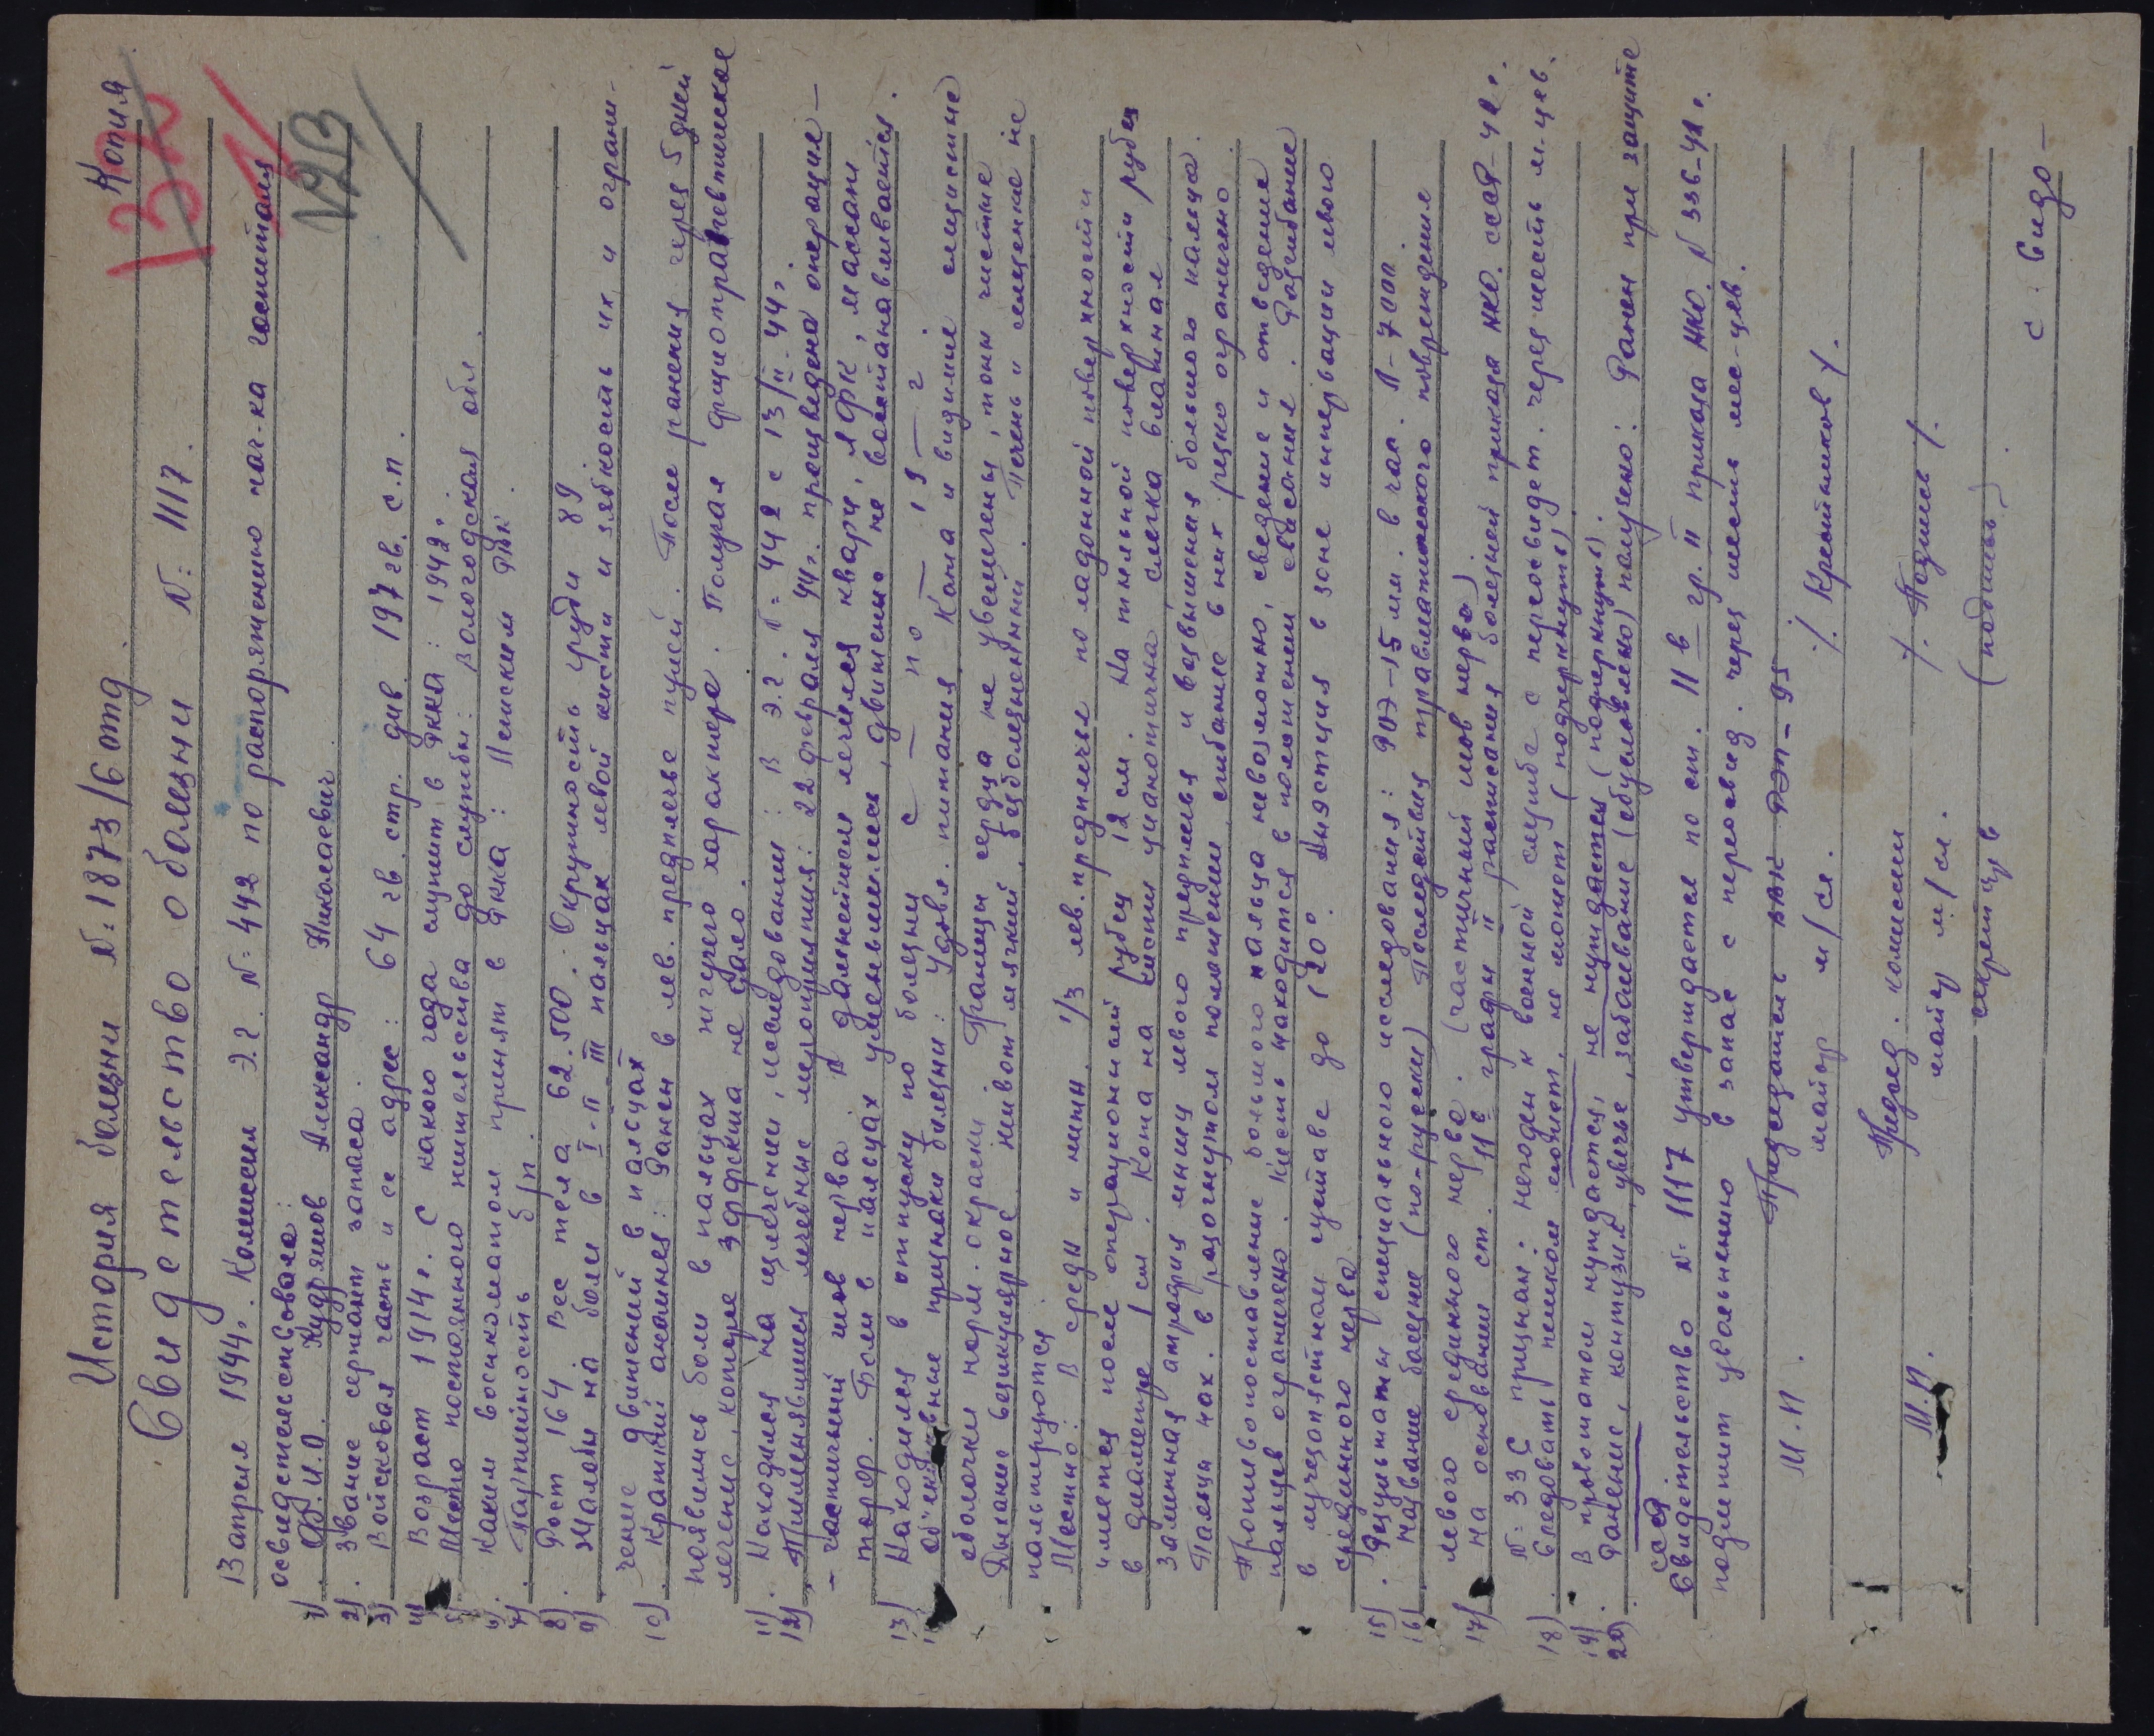 Копия
132
1
№2/3
История болезни №: 1873/6 отд.
Свидетельство о болезни №: 1117.
13 апреля 1944г. Комиссия Э.Г. №: 442 по распоряжению нач-ка госпиталя
освидетельствовала:
1). Ф.И.О. Кудрямов Александр Николаевич
2). Звание сержант запаса.
3) Войсковая часть и ее адрес: 64 гв. стр. див. 197 гв. с.п.
4) Возраст 1914г. С какого года служит в РККА: 1942г.
5) Место постоянного жительства до службы: Вологодская обл.
6) Каким военкоматом принят в РККА: РВК.
7). Партийность б/п.
8). Рост 164. Вес тела 62.500. Окружность груди 89.
9). Жалобы на боли в I-II III пальцах левой кисти и зябкость их, и ограни-
чение движений в пальцах
10). Краткий анамнез: Ранен в лев. предплечье пулей. После ранения через 5 дней
появились боли в пальцах жгучего характера. Получал физиотерапевтическое
лечение, которое эффекта не дало.
11). Находился на излечении, исследовании: В Э.Г. №: 442 с 13/II-44г.
12). Применявшиеся лечебные мероприятия: 22 февраля 44г. произведена операция –
– частичный шов нерва. В дальнейшем лечился кварц, ЛФК, массаж
Боли в пальцах уменьшились, движения не восстанавливаются.
13) Находился в отпуску по болезни с — по — 19 — г.
Об'ективные признаки болезни: Удовл. питания. Кожа и видимые слизистые
оболочки норм. окраски. Границы сердца не увеличены, тоны чистые
Дыхание везикулярное, живот мягкий, безболезненный. Печень и селезенка не
пальпируются.
Местно: В средн и нижн. 1/3 лев. предплечье по ладонной поверхности
имеется после операционный рубец 12 см. На тыльной поверхности рубец
в диаметре 1 см. Кожа на кисти цианотична слегка влажная
Заметная атрофия мышц левого предплечья и возвышения большого пальца.
Пальцы нах. в разогнутом положении, сгибание в них резко ограничено
Противопоставление большого пальца невозможно, сведение и отведение
пальцев ограничено. Кисть находится в положении свисания. Разгибание
в лучезапястном суставе до 120°. в зоне иннервации левого
срединного нерва
15). Результаты специального исследования: РОЭ-15 мм. в час. Л-7000.
16). Название болезни (по-русски) Последствия травматического повреждения
левого срединного нерва. (частичный шов нерва)
17) На основании ст. 11в графы II расписания болезней приказа НКО. СССР-42г.
№: 336 признан: негоден к военной службе с переосвидет. через шесть м-цев.
18). Следовать пешком может, не может (подчеркнуть)
19) В провожатом нуждается, не нуждается (подчеркнуть).
20). Ранение, контузия, увечье, заболевание (обусловлено) получено: Ранен при защите
СССР
Свидетельство №: 1117 утверждается по ст. 11в гр. II приказа НКО. №336-42г.
подлежит увольнению в запас с переосвид. через шесть мес-цев.
М.П. Председатель ВВК РЭП-95
майор м/сл. /. Крестников /.
Председ. комиссии
М.П. майор м/сл. /. /.
секретарь (подпись)